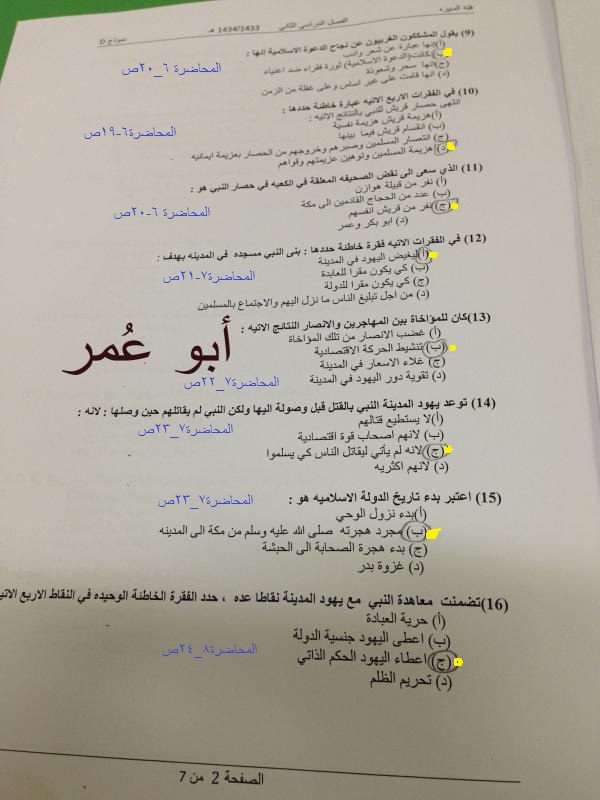 فقه السيره
الفصل الدراسي الثاني 1434/1433 هـ
نموذج D
(9) يقول المشككون الغربيون عن نجاح الدعوة الاسلامية انها :
(أ)انها عبارة عن شعر وادب
(ب)كانت(الدعوة الاسلامية) ثورة فقراء ضد اغنياء
(ج)انها سحر وشعوذة
(د) انها قامت على غير اساس وعلى غفلة من الزمن
المحاضرة ٦_٢٠ص
(10) في الفقرات الاربع الاتيه عبارة خاطئة حددها :
انتهى حصار قريش للنبي بالنتائج الاتيه :
(أ)هزيمة قريش هزيمة نفسية
(ب) انقسام قريش فيما بينها
(ج) انتصار المسلمين وصبرهم وخروجهم من الحصار بعزيمة ايمانيه
(د)هزيمة المسلمين وتوهين عزيمتهم وقواهم
المحاضرة٦-١٩ص
(11) الذي سعى الى نقض الصحيفه المعلقة في الكعبه في حصار النبي هو :
(أ) نفر من قبيلة هوازن
(ب) عدد من الحجاج القادمين الى مكة
(ج)نفر من قريش انفسهم
(د) ابو بكر وعمر
المحاضرة ٦-٢٠ص
(12) في الفقرات الاتيه فقرة خاطئة حددها : بنى النبي مسجده في المدينه بهدف :
(أ)ليغيض اليهود في المدينة
(ب) كي يكون مقرا للعابدة
(ج) كي يكون مقرا للدولة
(د) من اجل تبليغ الناس ما نزل اليهم والاجتماع بالمسلمين
المحاضرة٧-٢١ص
(13)كان للمؤاخاة بين المهاجرين والانصار النتائج الاتيه :
(أ) غضب الانصار من تلك المؤاخاة
(ب)تنشيط الحركة الاقتصادية
(ج) غلاء الاسعار في المدينة
(د) تقوية دور اليهود في المدينة
أبو عُمر
المحاضرة٧_٢٢ص
(14) توعد يهود المدينة النبي بالقتل قبل وصولة اليها ولكن النبي لم يقاتلهم حين وصلها : لانه :
(أ)لا يستطيع قتالهم
(ب) لانهم اصحاب قوة اقتصادية
(ج)لانه لم يأتي ليقاتل الناس كي يسلموا
(د) لانهم اكثريه
المحاضرة٧_٢٣ص
(15) اعتبر بدء تاريخ الدولة الاسلاميه هو :
(أ)بدء نزول الوحي
(ب)مجرد هجرته صلى الله عليه وسلم من مكة الى المدينه
(ج) بدء هجرة الصحابة الى الحبشة
(د) غزوة بدر
المحاضرة٧_٢٣ص
(16)تضمنت معاهدة النبي مع يهود المدينة نقاطا عده ، حدد الفقرة الخاطئة الوحيده في النقاط الاربع الاتيه
(أ) حرية العبادة
(ب) اعطى اليهود جنسية الدولة
(ج)اعطاء اليهود الحكم الذاتي
(د) تحريم الظلم
المحاضرة٨_٢٤ص
الصفحة 2 من 7